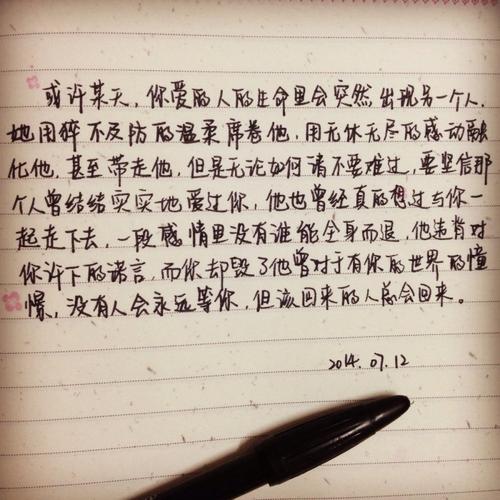 或许某天,你爱的人的生命里会突然出现另一个人,
她用猝不及防的温柔席卷他,用无休无尽的感动融
化他,甚至带走他,但是无论如何请不要难过,要坚信那
个人曾结结实实地爱过你,他也曾经真的想过与你一
起走下去,一段感情里没有谁能全身而退,他违背对
你许下的诺言,而你却毁了他曾对于有你的世界的憧
憬,没有人会永远等你,但该回来的人总会回来。
2014.07.12